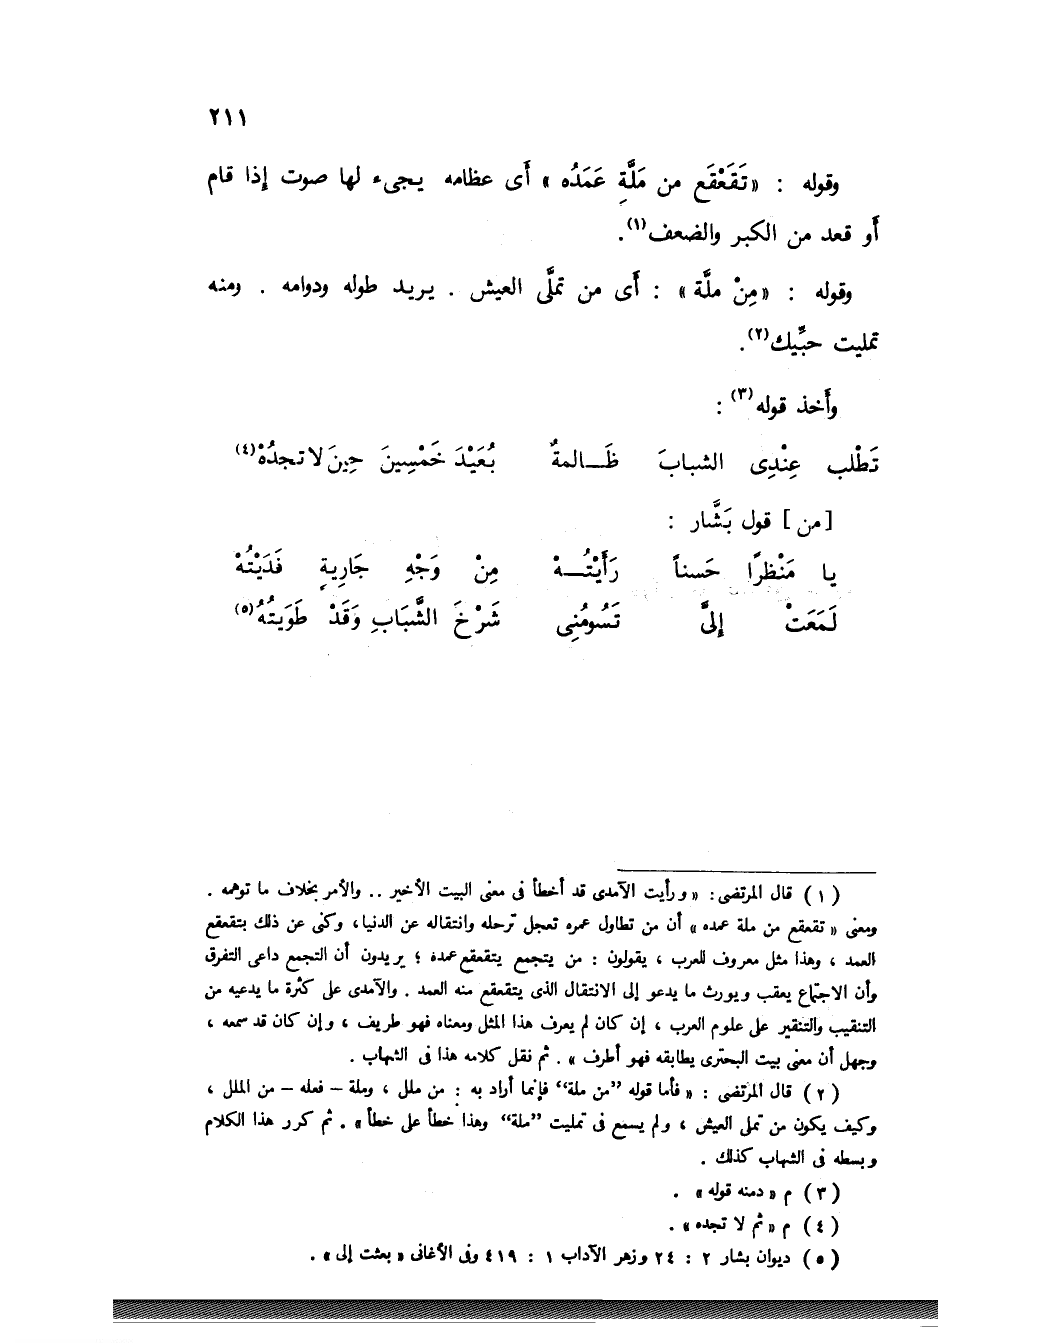 ٢١١
وقوله : «تَقَعْقَع من مَلَّةٍ عَمَدُه » أَى عظامه يجىء لها صوت إذا قام
أَو قعد من الكبر والضعف(١).
وقوله : «مِنْ ملَّة » : أَى من تملَّى العيش . يريد طوله ودوامه . ومنه
تمليت حبِّيك(٢).
وأَخذ قوله(٣) :
تَطْلب عِنْدِى الشبابَ ظَـالمةٌ بُعَيْدَ خَمْسِينَ حِينَ لا تجدُهْ(٤)
[من] قول بَشَّار :
يا مَنْظرًا حَسناً رَأَيْتُـهْ مِنْ وَجْهِ جَارِيةٍ فَدَيْتُهْ
لَمَعَتْ إِلىَّ تَسُومُنِى شَرْخَ الشَّبَابِ وَقَدْ طَوَيتُهُ(٥)
(١) قال المرتضى : « ورأيت الآمدى قد أخطأ فى معنى البيت الأخير .. والأمر بخلاف ما توهمه .
ومعنى « تقعقع من ملة عمده » أن من تطاول عمره تعجل ترحله وانتقاله عن الدنيا، وكنى عن ذلك بتقعقع
العمد ، وهذا مثل معروف للعرب ، يقولون : من يتجمع يتقعقع عمده ؛ يريدون أن التجمع داعى التفرق
وأن الاجتماع يعقب ويورث ما يدعو إلى الانتقال الذى يتقعقع منه العمد . والآمدى على كثرة ما يدعيه من
التنقيب والتنقير على علوم العرب ، إن كان لم يعرف هذا المثل ومعناه فهو طريف ، وإن كان قد سمعه ،
وجهل أن معنى بيت البحترى يطابقه فهو أطرف » . ثم نقل كلامه هذا فى الشهاب .
(٢) قال المرتضى : « فأما قوله “من ملة“ فإنما أراد به : من ملل ، وملة – فعله – من الملل ،
وكيف يكون من تملى العيش ، ولم يسمع فى تمليت “ملة“ وهذا خطأ على خطأ » . ثم كرر هذا الكلام
وبسطه فى الشهاب كذلك .
(٣) م « دمنه قوله » .
(٤) م « ثم لا تجده » .
(٥) ديوان بشار ٢ : ٢٤ وزهر الآداب ١ : ٤١٩ وفى الأغانى « بعثت إلى » .